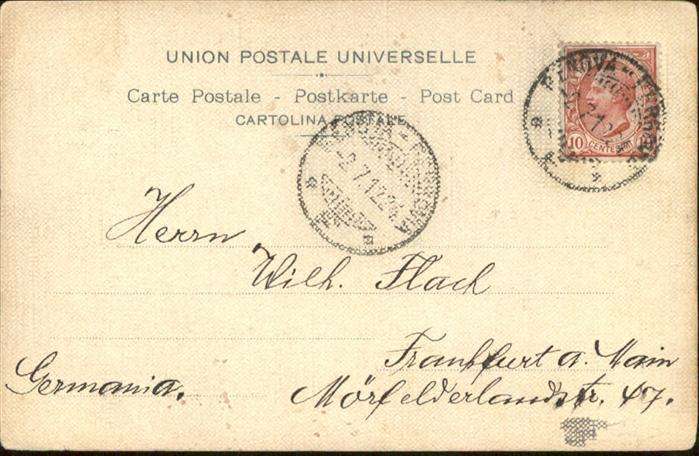 UNION POSTALE UNIVERSELLE
Carte Postale - Postkarte - Post Card
CARTOLINA POSTALE
10 CENTESIMI
GENOVA
Herrn
Wilh. Flach
Frankfurt a. Main
Germania.
Mörfelderlandstr. 47.